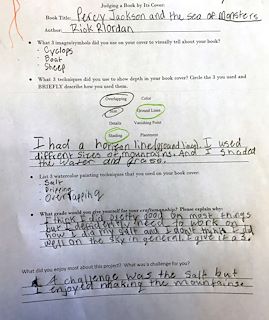 Judging a Book by Its Cover:
Book Title: Percy Jackson and the sea of Monsters
Author: Rick Riordan
• What 3 images/symbols did you use on your cover to visually tell about your book?
· Cyclops
· Boat
· Sheep
• What 3 techniques did you use to show depth in your book cover? Circle the 3 you used and
BRIEFLY describe how you used them.
Overlapping Color
Size Ground Lines
Details Vanishing Point
Shading Placement
I had a horizon line (ground line). I used
different sizes of mountains. And I shaded
the water and trees.
• List 3 watercolor painting techniques that you used on your book cover:
· Salt
· Dripping
· Overlapping
• What grade would you give yourself for your craftsmanship? Please explain why:
I think I did pretty good on most things
but I definitely need to work on
how I did my salt and I don't think I did
well on the sky in general. I give it a 3.
What did you enjoy most about this project? What was a challenge for you?
A challenge was the salt but
I enjoyed making the mountains.